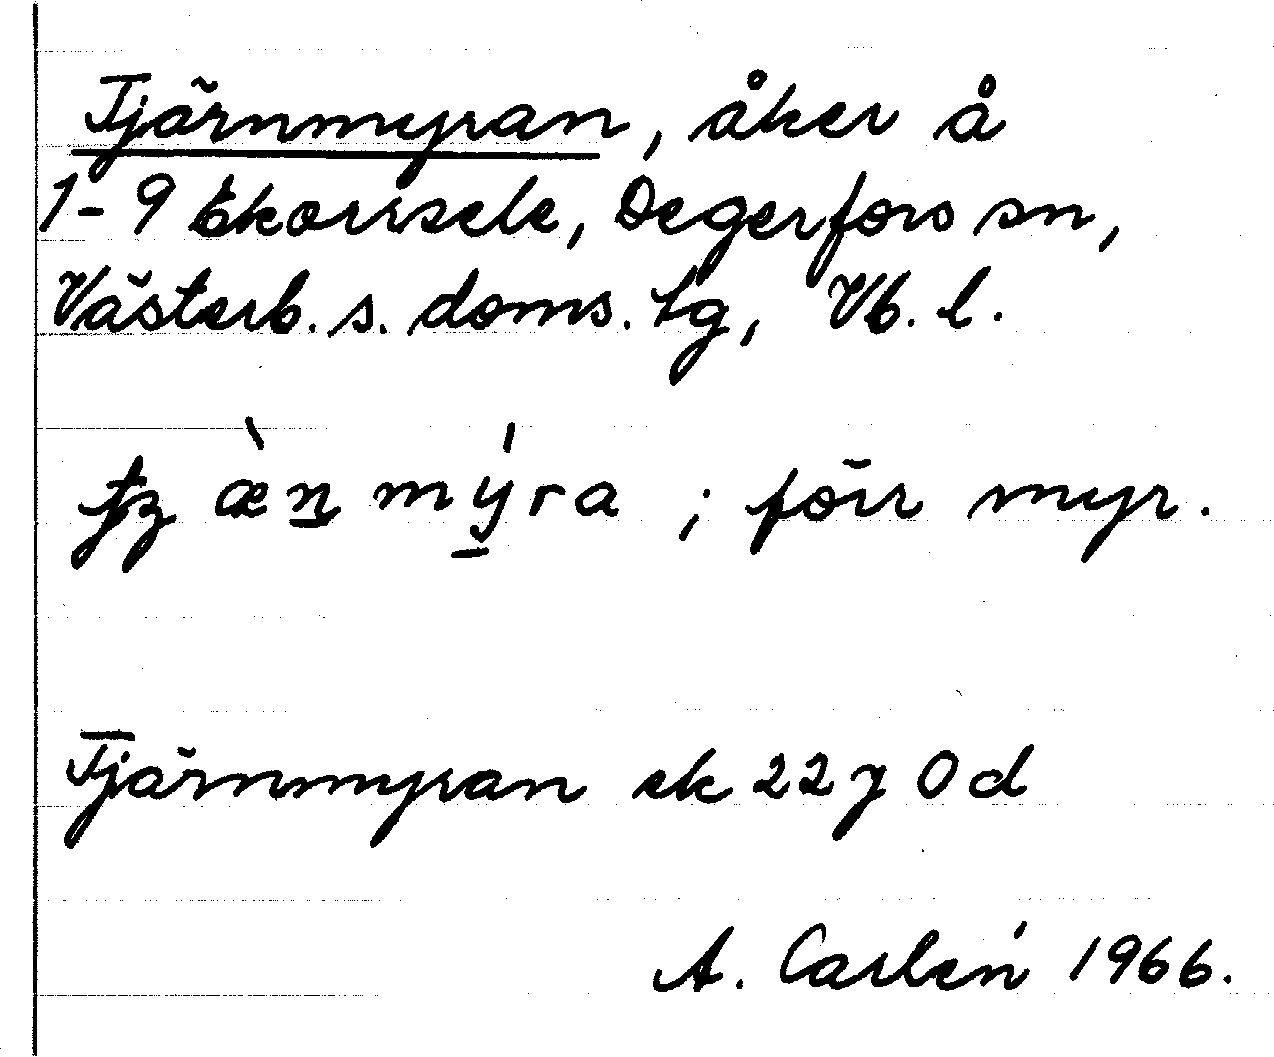 Tjärnmyran, åker å
1-9 Ekorrsele, Degerfors sn,
Västerb. s. doms. tg, Vb. l.
æ̀n̲ mý̲ra ; förr myr.
Tjärnmyran ek 22 7 0 d
A. Carlén 1966.